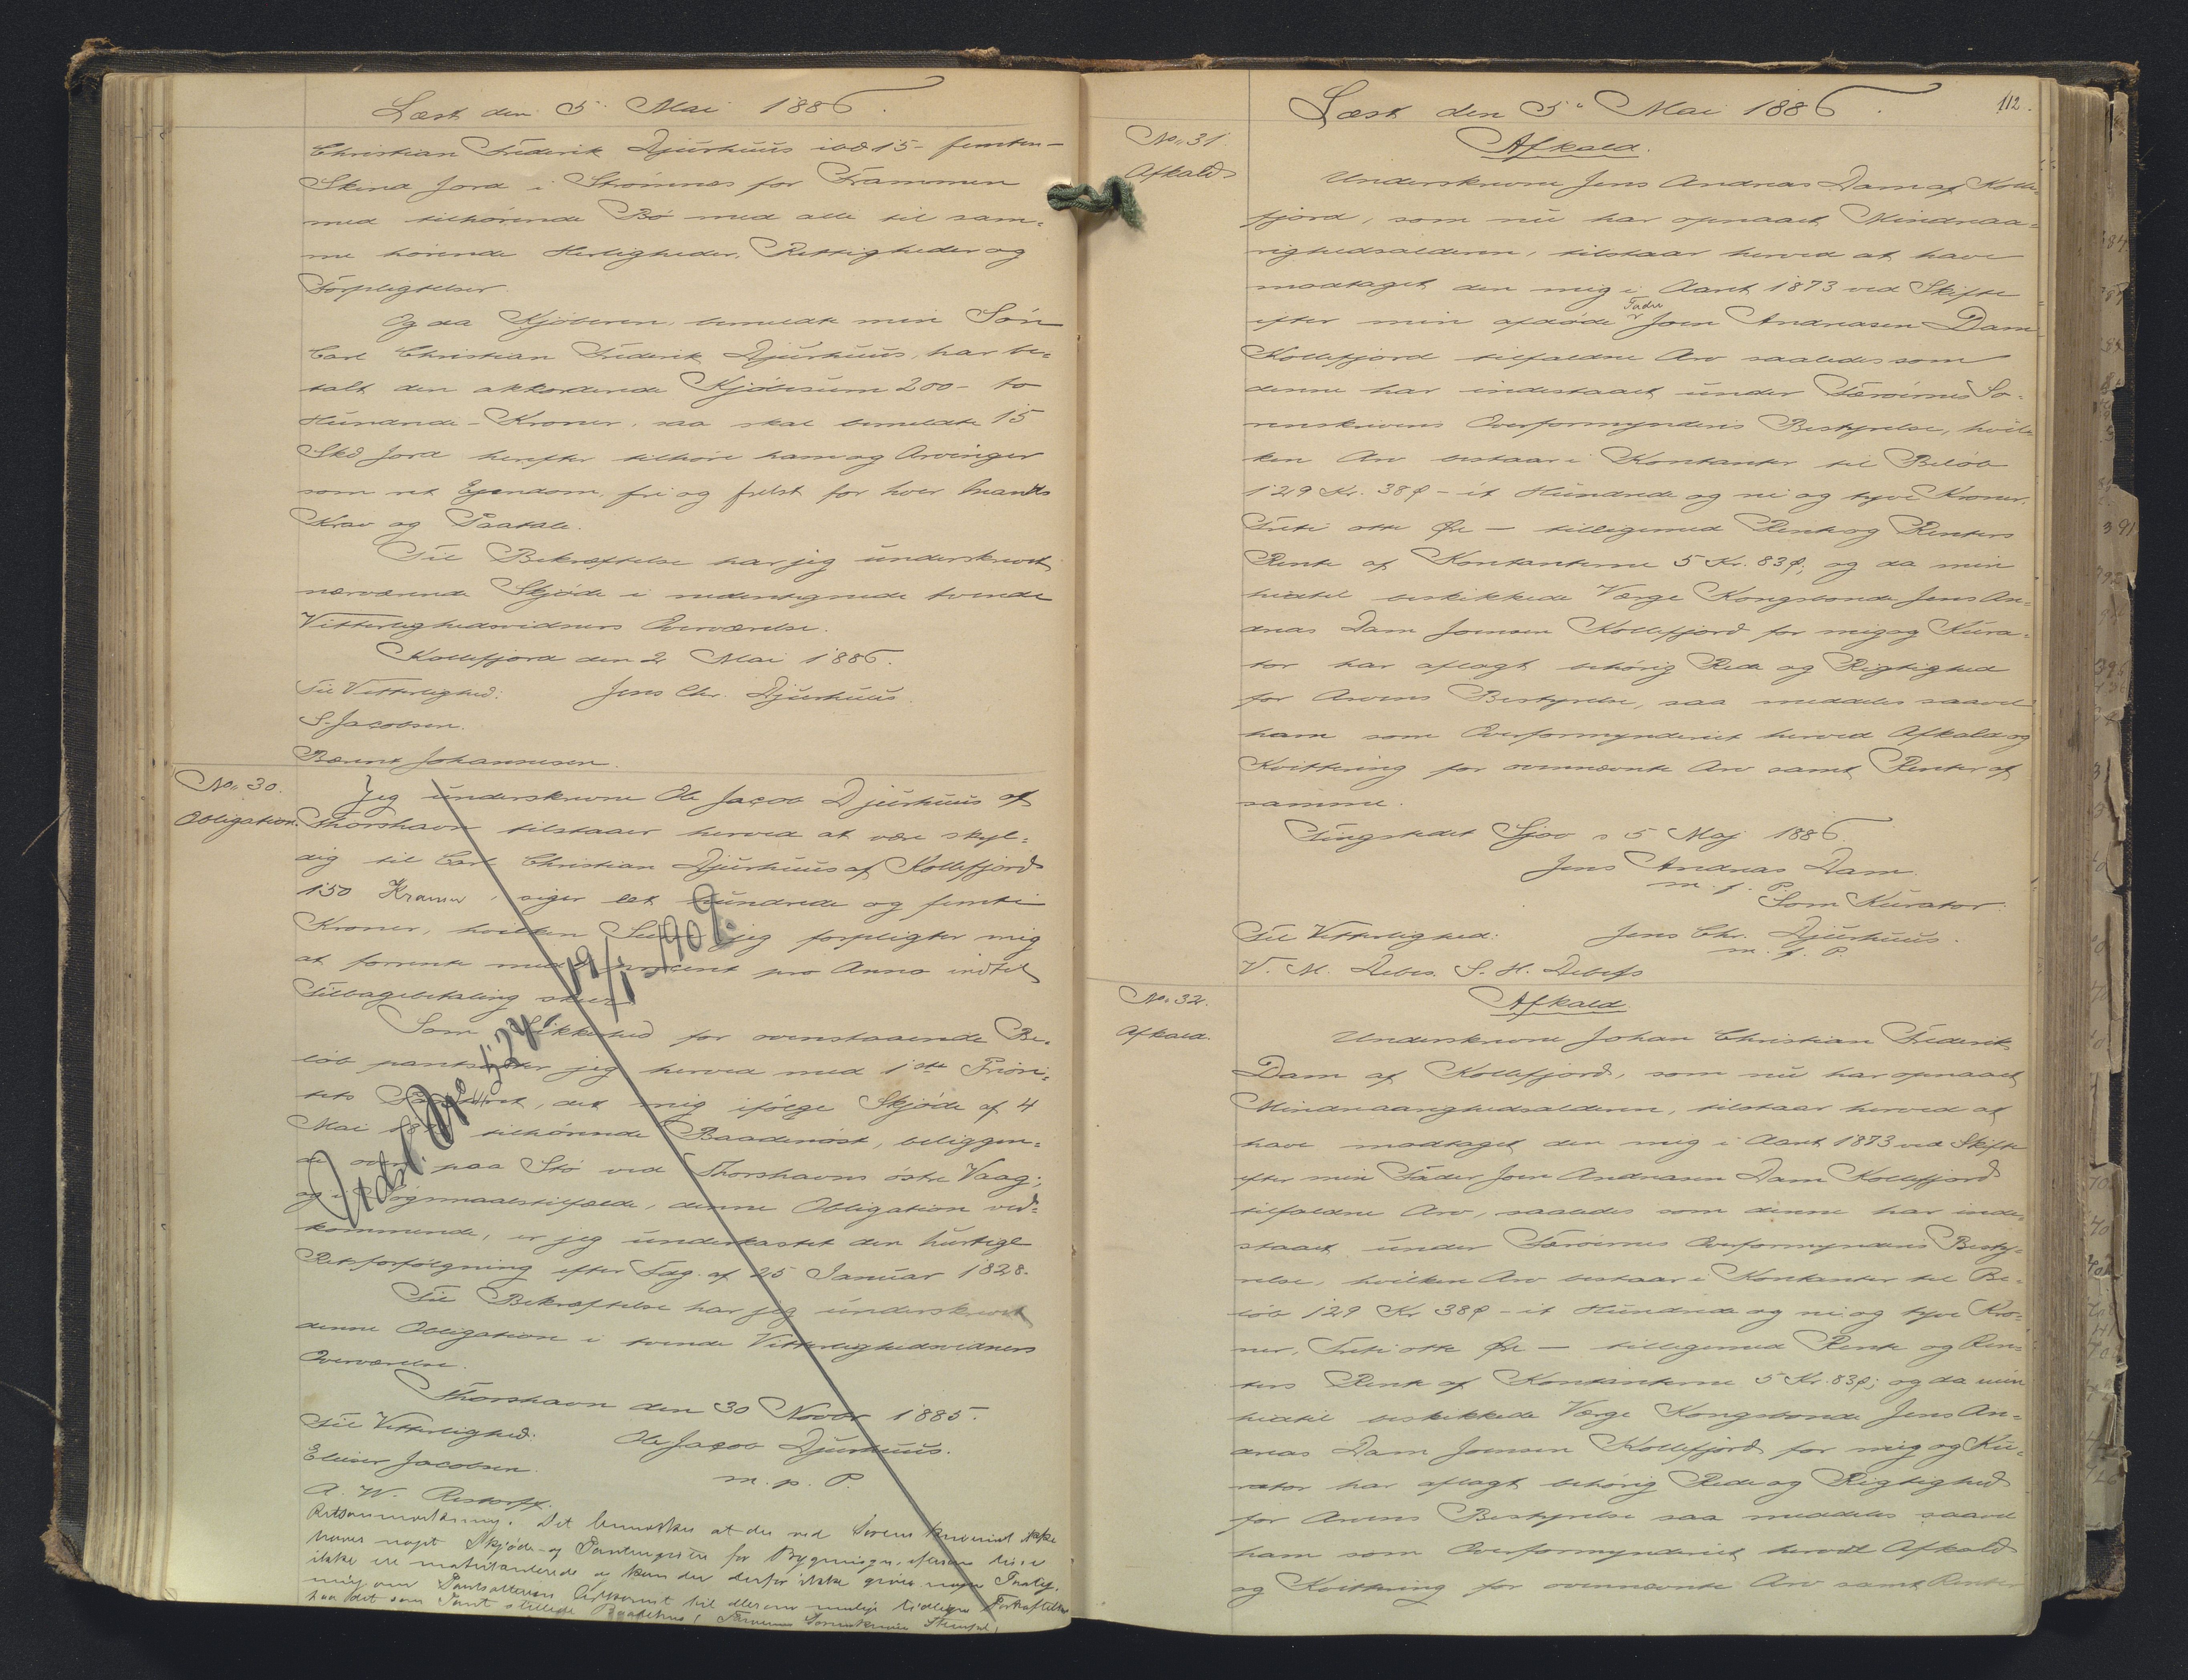 Læst den 5 Mai 1886.
Christian Frederik Djurhuus ibd 15 - femten -
Skind Jord i Strømnæs for Frammen
med tilhørende Bø med alle til sam-
me hørende Herligheder, Rettigheder og
Forpligtelser.
Og da Kjøberen, bemeldte min Søn
Carl Christian Frederik Djurhuus, har be-
talt den akkorderede Kjøbesum 200 - to
Hundrede - Kroner, saa skal bemeldte 15
Skd Jord herefter tilhøre ham og Arvinger
som ret Ejendom, fri og frelst for hver Mands
Krav og Paatale.
Til Bekræftelse har jeg underskrevet
nærværende Skjøde i nedentegnede tvende
Vitterlighedsvidners Overværelse.
Kollefjord den 2 Mai 1886.
Til Vitterlighed: Jens Chr. Djurhuus.
S. Jacobsen.
Bærent Johannesen.
No. 30.
Obligation.
Jeg underskrevne Ole Jacob Djurhuus af
Thorshavn tilstaaer herved at være skyl-
dig til Carl Christian Djurhuus af Kollefjord
150 Kroner, siger Et hundrede og femti
Kroner, hvilken Sum jeg forpligter mig
at forrente med procent pro Anno indtil
Tilbagebetaling sker.
Som Sikkerhed for ovenstaaende Be-
løb pantsætter jeg herved med 1ste Priori-
tets Panteret, det mig ifølge Skjøde af 4
Mai tilhørende Baadenøst, beliggen-
de oven paa Stø ved Thorshavns østre Vaag;
og i Søgmaalstilfælde, denne Obligation ved-
kommende, er jeg underkastet den hurtige
Retsforfølgning efter Fdg. af 25 Januar 1828.
Til Bekræftelse har jeg underskrevet
denne Obligation i tvende Vitterlighedsvidners
Overværelse.
Thorshavn den 30 Novbr 1885.
Til Vitterlighed: Ole Jacob Djurhuus.
Elieser Jacobsen. m. p. P.
A. W. Restorff.
Retsanmærkning. Det bemærkes at der ved Sorenskriveriet ikke
haves noget Skjøde- og Panteregister for Bygninger, efterson disse
ikke ere matrikulerede og kan der derfor ikke gives nogen
mig om Pantsætterens Adkomst til eller om mulige tidligere Forhæftelser
paa det som Pant stillede Baadehus. Færøernes Sorenskriveri Stempel.
Udsl. 19/1 1909.
Læst den 5 Mai 1886.
112.
No. 31
Afkald
Afkald.
Underskrevne Jens Andreas Dam af Kolle-
fjord, som nu har opnaaet Mindreaa-
righedsalderen, tilstaar herved at have
modtaget den mig i Aaret 1873 ved Skifte
efter min afdøde Fader Joen Andreasen Dam
Kollefjord tilfaldne Arv saaledes som
denne har indestaaet under Færøernes So-
renskrivers Overformynderis Bestyrelse, hvil-
ken Arv bestaar i Kontanter til Beløb
129 Kr. 38 Ø - et Hundrede og ni og tyve Kroner,
Treti otte Øre - tilligemed Rente og Renters
Rente af Kontanterne 5 Kr. 83 Ø; og da min
hidtil beskikkede Værge Kongsbonde Jens An-
dreas Dam Joensen Kollefjord for mig og Kura-
tor har aflagt behørig Rede og Rigtighed
for Arvens Bestyrelse, saa meddeles saavel
ham som Overformynderiet herved Afkald og
Kvittering for ovennævnte Arv samt Renter af
samme.
Tingstedet Sjov d 5 Maj 1886
Jens Andreas Dam.
m. f. P.
Som Kurator:
Til Vitterlighed: Jens Chr. Djurhuus.
m. f. P.
V. M. Debes. S. H. Debess
No. 32.
Afkald.
Afkald
Underskrevne Johan Christian Frederik
Dam af Kollefjord, som nu har opnaaet
Mindreaarighedsalderen, tilstaar herved at
have modtaget den mig i Aaret 1873 ved Skifte
efter min Fader Joen Andreasen Dam Kollefjord
tilfaldne Arv, saaledes som denne har inde-
staaet under Færøernes Overformynderis Besty-
relse, hvilken Arv bestaar i Kontanter til Be-
løb 129 Kr 38 Ø - et Hundrede og ni og tyve Kro-
ner, Treti otte Øre - tilligemed Rente og Ren-
ters Rente af Kontanterne 5 Kr. 83 Ø; og da min
hidtil beskikkede Værge Kongsbonde Jens An-
dreas Dam Joensen Kollefjord for mig og Ku-
rator har aflagt behørig Rede og Rigtighed
for Arvens Bestyrelse saa meddeles saavel
ham som Overformynderiet herved Afkald
og Kvittering for ovennævnte Arv samt Renter